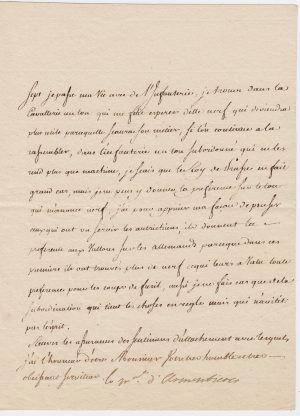 Sept je passe ma vie avec de l'infanterie, je trouve dans la
Cavallerie un ton qui me fait esperer d'elle nerf qui deviendra
plus utile parcequelle scaura son metier, si l'on continue a la
rassembler, dans l'infanterie un ton subordonné qui ne les
rend plus que machines, je scais que le Roy de Prusse en fait
grand cas mais je ne peux y donner la preference sur le ton
qui m'annonce nerf, j'ai pour appuier ma façon de penser
ceux qui ont vu servir les autrichiens, ils donnent la
preference aux Vallons sur les allemands parceque dans ces
premiers ils ont trouvés plus de nerf ce qui leurs a valu toute
preference pour les coups de fusil, aussi je ne fais cas que de la
subordination qui tient les choses en regle mais qui n'avilit
pas l'esprit.
Recevez les assurances des sentimens d'attachement avec lesquels
j'ai l'honneur d'être Monsieur Votre très humble et très
obeissant serviteur le m.al d'Armentieres